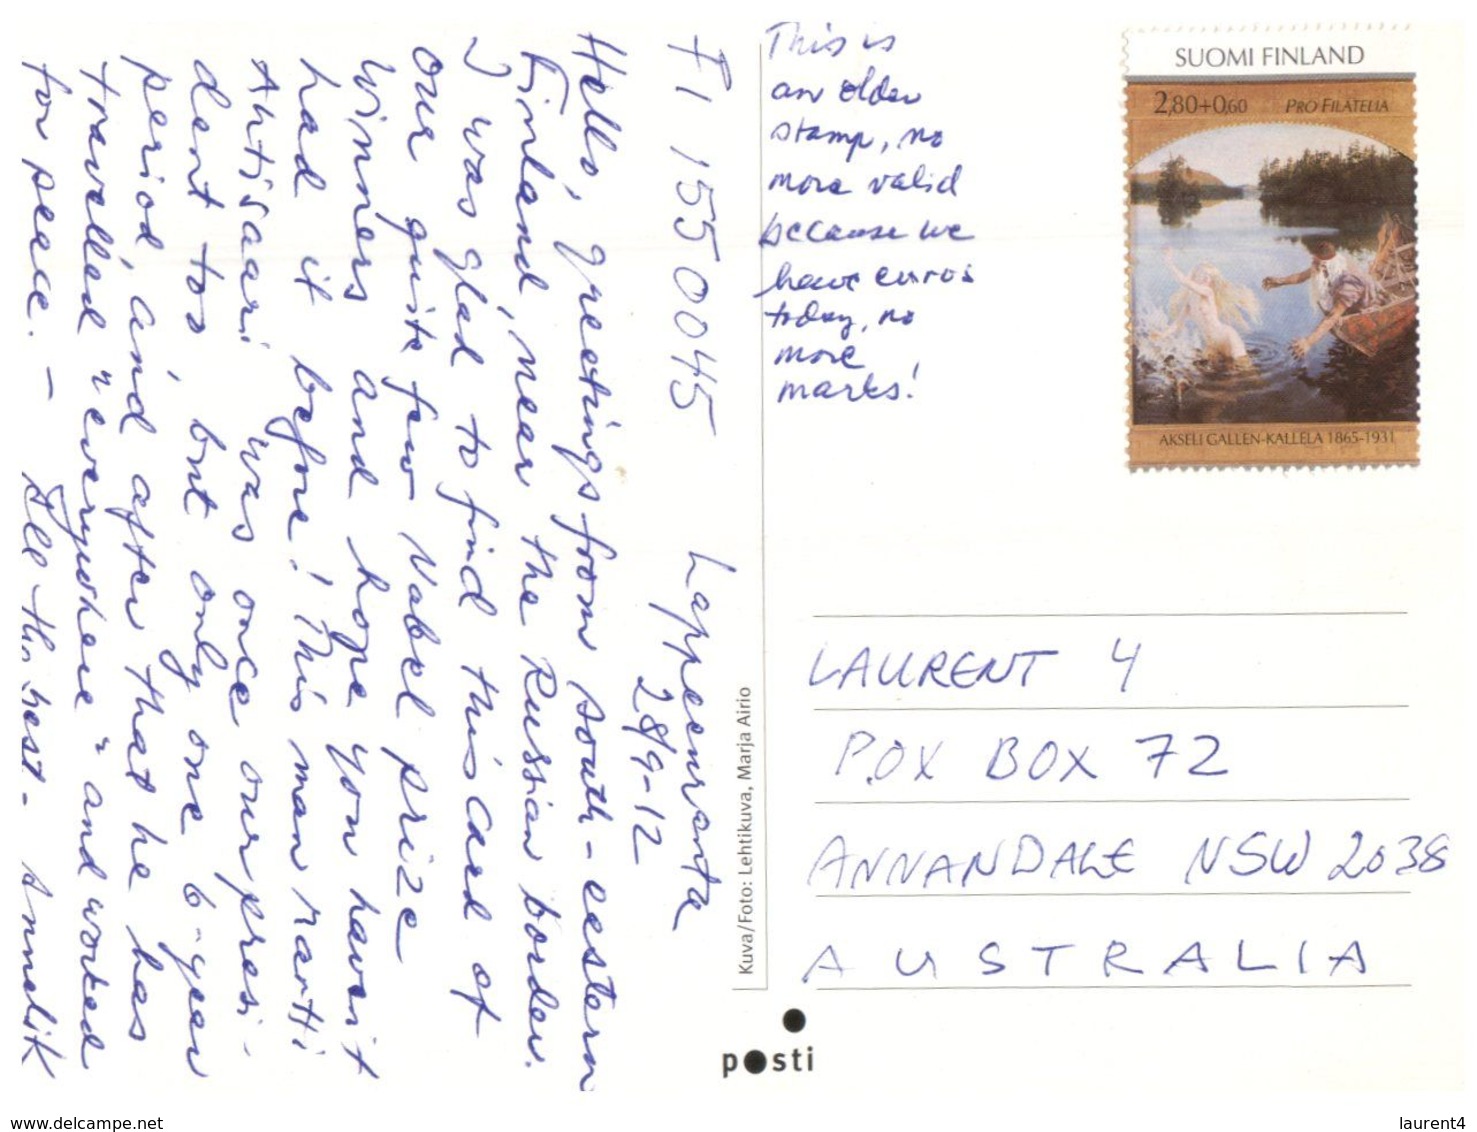 FI 1550045 Lappeenranta
28/9-12
Hello, greetings from south-eestern
Finland, near the Russian border.
I was glad to find this card of
our quite few Nobel prize
winners and hope you havn't
had it before! This man Martti
Ahtisaari was once our presi-
dent too but only one 6-year
period, and after that he has
travelled "everywhere" and worked
for peace. - All the best - Annelik
This is
an older
stamp, no
more valid
because we
have euros
today, no
more
marks!
SUOMI FINLAND
2,80+0,60 PRO FILATELIA
AKSELI GALLEN-KALLELA 1865-1931
LAURENT 4
P.OX BOX 72
ANNANDALE NSW 2038
AUSTRALIA
Kuva/Foto: Lehtikuva, Marja Airio
posti
www.delcampe.net
laurent4